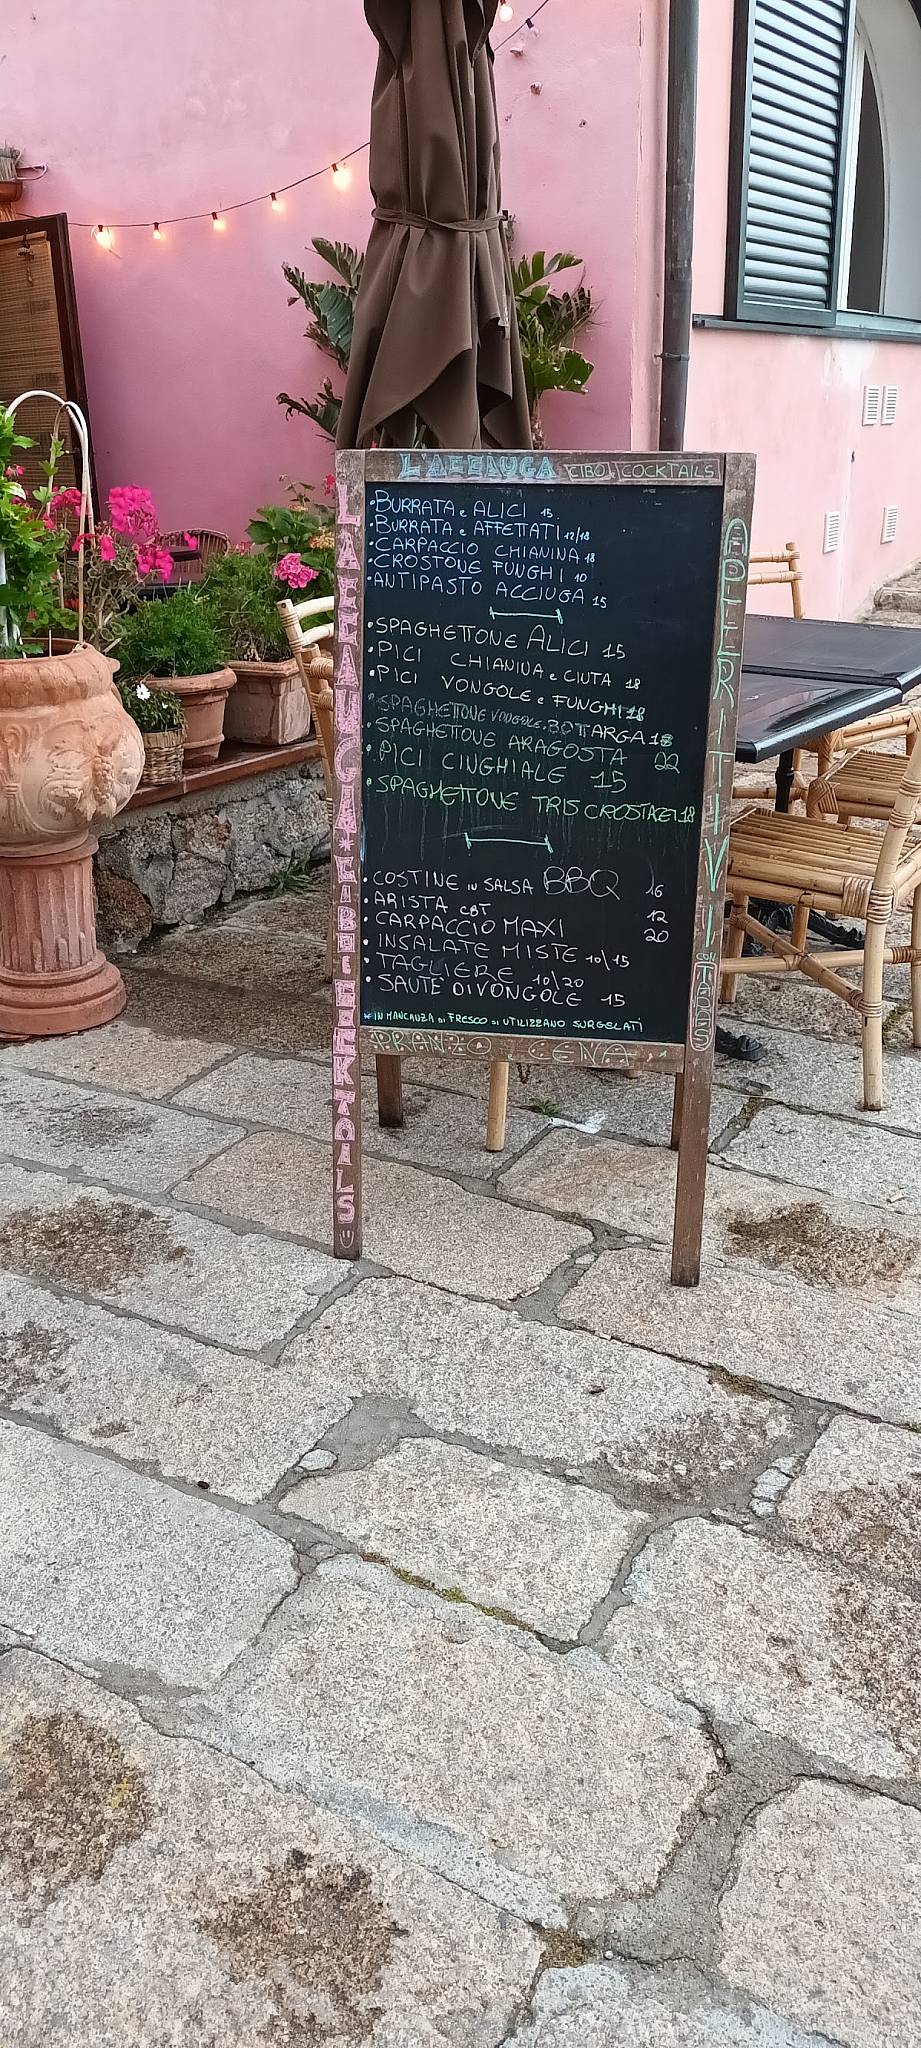 L'ACCIUGA CIBO e COCKTAILS
• BURRATA e ALICI 15
• BURRATA e AFFETTATI 12/18
• CARPACCIO CHIANINA 18
• CROSTONE FUNGHI 10
• ANTIPASTO ACCIUGA 15
• SPAGHETTONE ALICI 15
• PICI CHIANINA e CINTA 18
• PICI VONGOLE e FUNGHI 18
• SPAGHETTONE VONGOLE e BOTTARGA 18
• SPAGHETTONE ARAGOSTA 22
• PICI CINGHIALE 15
• SPAGHETTONE TRIS CROSTACEI 18
• COSTINE IN SALSA BBQ 16
• ARISTA CBT 12
• CARPACCIO MAXI 20
• INSALATE MISTE 10\15
• TAGLIERE 10/20
• SAUTÈ DI VONGOLE 15
* IN MANCANZA DI FRESCO SI UTILIZZANO SURGELATI
PRANZO CENA
L'ACCIUGA * CIBO e COCKTAILS
APERITIVI CON TAPAS